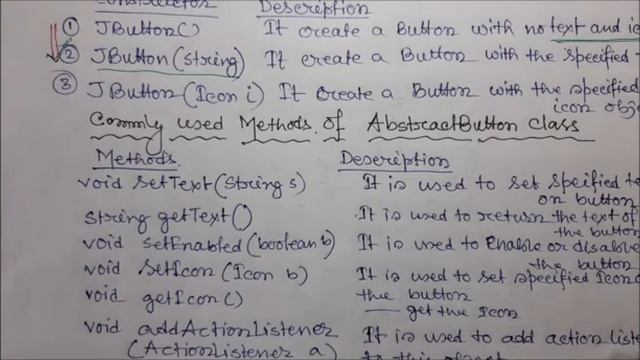 Constructor Description
① JButton() It create a Button with no text and
② JButton(string) It create a Button with the specified
③ JButton(Icon i) It create a Button with the specified
icon obj
Commly used Methods of AbstractButton class
Methods Description
void setText(string s) It is used to set specified
on button
string getText() It is used to return the text of
the button
void setEnabled(boolean b) It is used to Enable or disable
the button
void setIcon(Icon b) It is used to set specified Icon
the button
void getIcon() get the Icon
void addActionListener It is used to add action
(ActionListener a) to this object